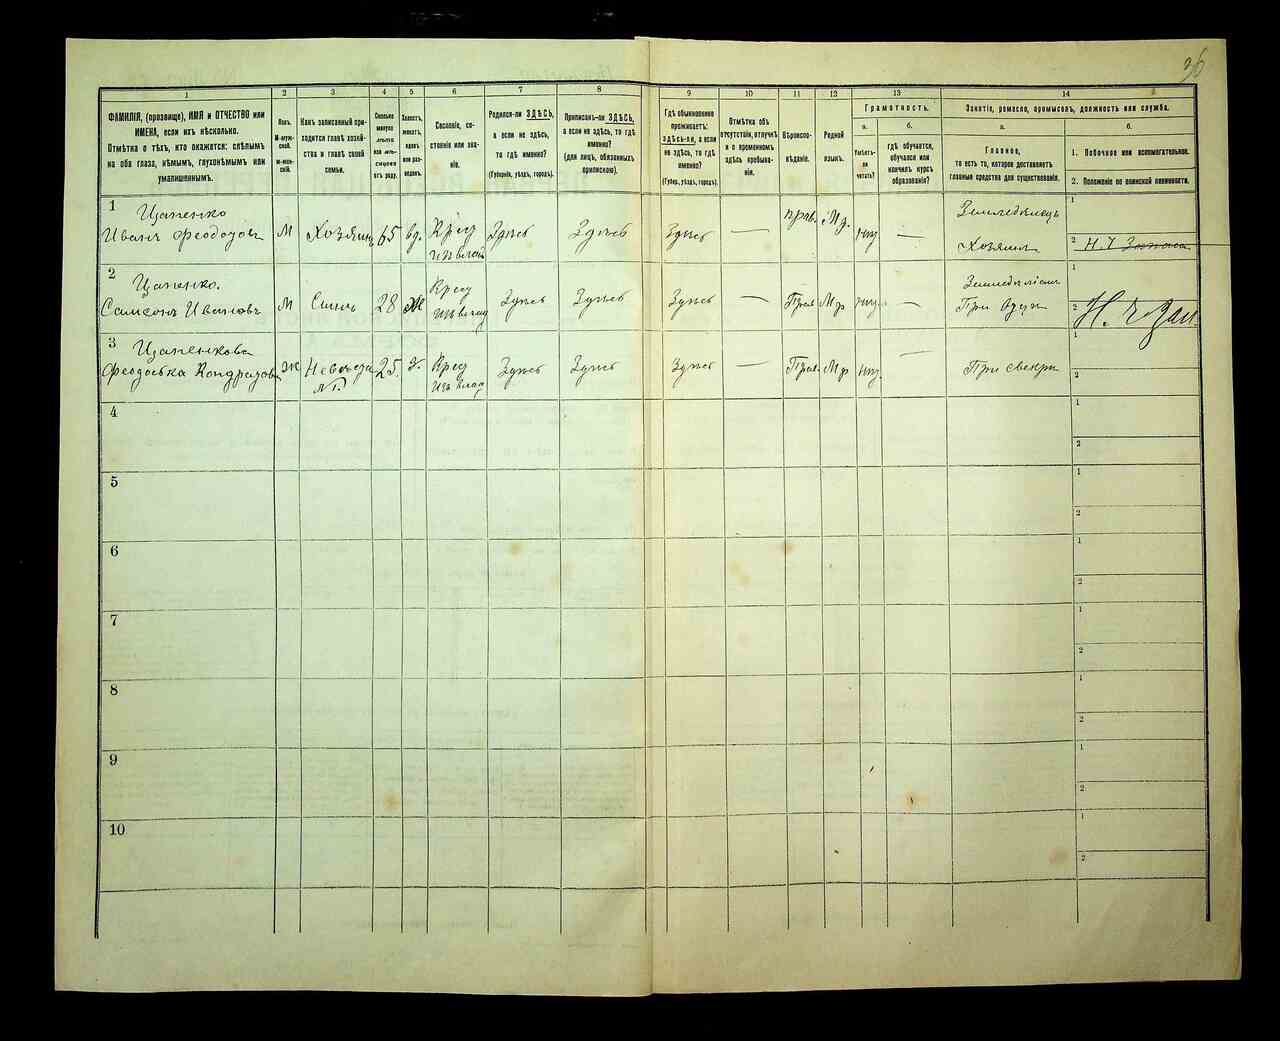 36
1
2
3
4
5
6
7
8
9
10
11
12
13
14
ФАМИЛІЯ, (прозвище), ИМЯ и ОТЧЕСТВО или
ИМЕНА, если ихъ нѣсколько.
Отмѣтка о тѣхъ, кто окажется: слѣпымъ
на оба глаза, нѣмымъ, глухонѣмымъ или
умалишеннымъ.
Полъ.
М-муж-
ской.
Ж-жен-
скій.
Какъ записанный при-
ходится главѣ хозяй-
ства и главѣ своей
семьи.
Сколько
минуло
лѣтъ
или мѣ-
сяцевъ
отъ роду.
Холостъ,
женатъ,
вдовъ
или раз-
веденъ.
Сословіе, со-
стояніе или зва-
ніе.
Родился-ли ЗДѢСЬ,
а если не здѣсь,
то гдѣ именно?
(Губернія, уѣздъ, городъ).
Приписанъ-ли ЗДѢСЬ,
а если не здѣсь, то гдѣ
именно?
(для лицъ, обязанныхъ
припискою).
Гдѣ обыкновенно
проживаетъ:
здѣсь-ли, а если
не здѣсь, то гдѣ
именно?
(Губер., уѣздъ, городъ).
Отмѣтка объ
отсутствіи, отлучкѣ
и о временномъ
здѣсь пребыва-
ніи.
Вѣроиспо-
вѣданіе.
Родной
языкъ.
Грамотность.
а.
Умѣетъ-
ли
читать?
б.
гдѣ обучается,
обучался или
кончилъ курсъ
образованія?
Занятіе, ремесло, промыселъ, должность или служба.
а.
Главное,
то есть то, которое доставляетъ
главныя средства для существованія.
б.
1. Побочное или вспомогательное.
2. Положеніе по воинской повинности.
1
Цапенко
Иванъ Феодоровъ
М
Хозяинъ
65
вд.
Крест
Здѣсь
Здѣсь
Здѣсь
—
прав.
Мр.
—
Земледѣлецъ
Хозяинъ
1
2
2
Цапенко.
Самсонъ Ивановъ
М
Сынъ
28
ж
Крест
Здѣсь
Здѣсь
Здѣсь
—
Прав
Мр
—
При отцѣ
1
2
3
Цапенкова
Феодоська Кондратова
Ж
Невѣстка
25.
з.
Крест
Здѣсь
Здѣсь
Здѣсь
—
Прав.
Мр
—
При свекрѣ
1
2
4
1
2
5
1
2
6
1
2
7
1
2
8
1
2
9
1
2
10
1
2